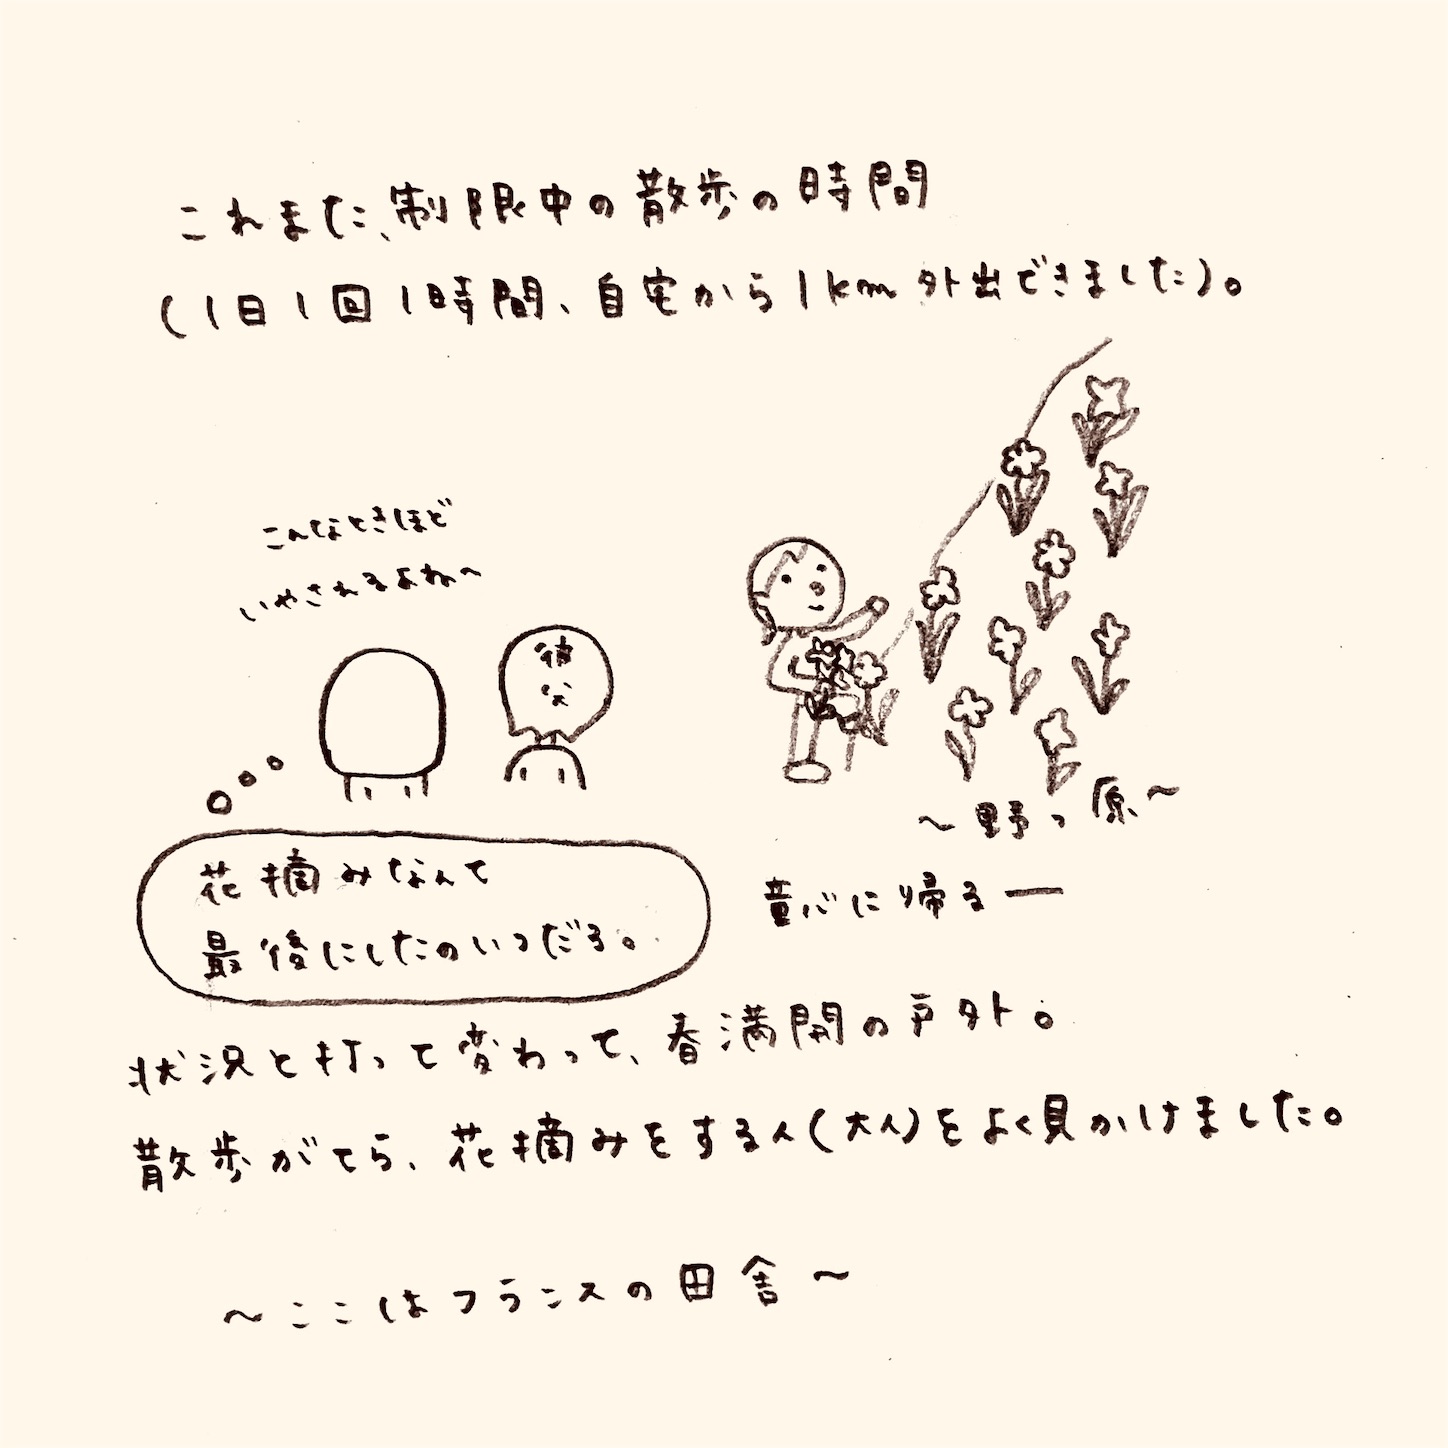 これまた、制限中の散歩の時間
(1日1回1時間、自宅から1km外出できました)。
こんなときほど
いやされるよね〜
彼
父
〜野っ原〜
童心に帰るー
花摘みなんて
最後にしたのいつだろ。
状況と打って変わって、春満開の戸外。
散歩がてら、花摘みをする人(大人)をよく見かけました。
〜ここはフランスの田舎〜